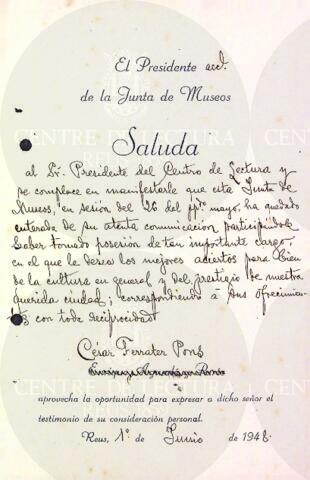 El Presidente accl.
de la Junta de Museos
Saluda
al Sr. Presidente del Centro de Lectura y
se complace en manifestarle que esta Junta de
Museos, en sesión del 26 del ppdo. mayo, ha quedado
enterada de su atenta comunicación participándole
haber tomado posesión de tan importante cargo,
en el que le deseo los mejores aciertos para bien
de la cultura en general y del prestigio de nuestra
querida ciudad; correspondiendo à sus ofrecimien
tos con toda reciprocidad
César Ferrater Pons
aprovecha la oportunidad para expresar a dicho señor el
testimonio de su consideración personal.
Reus, 1º de Junio de 1948.
CENTRE DE LECTURA
REUS 1859